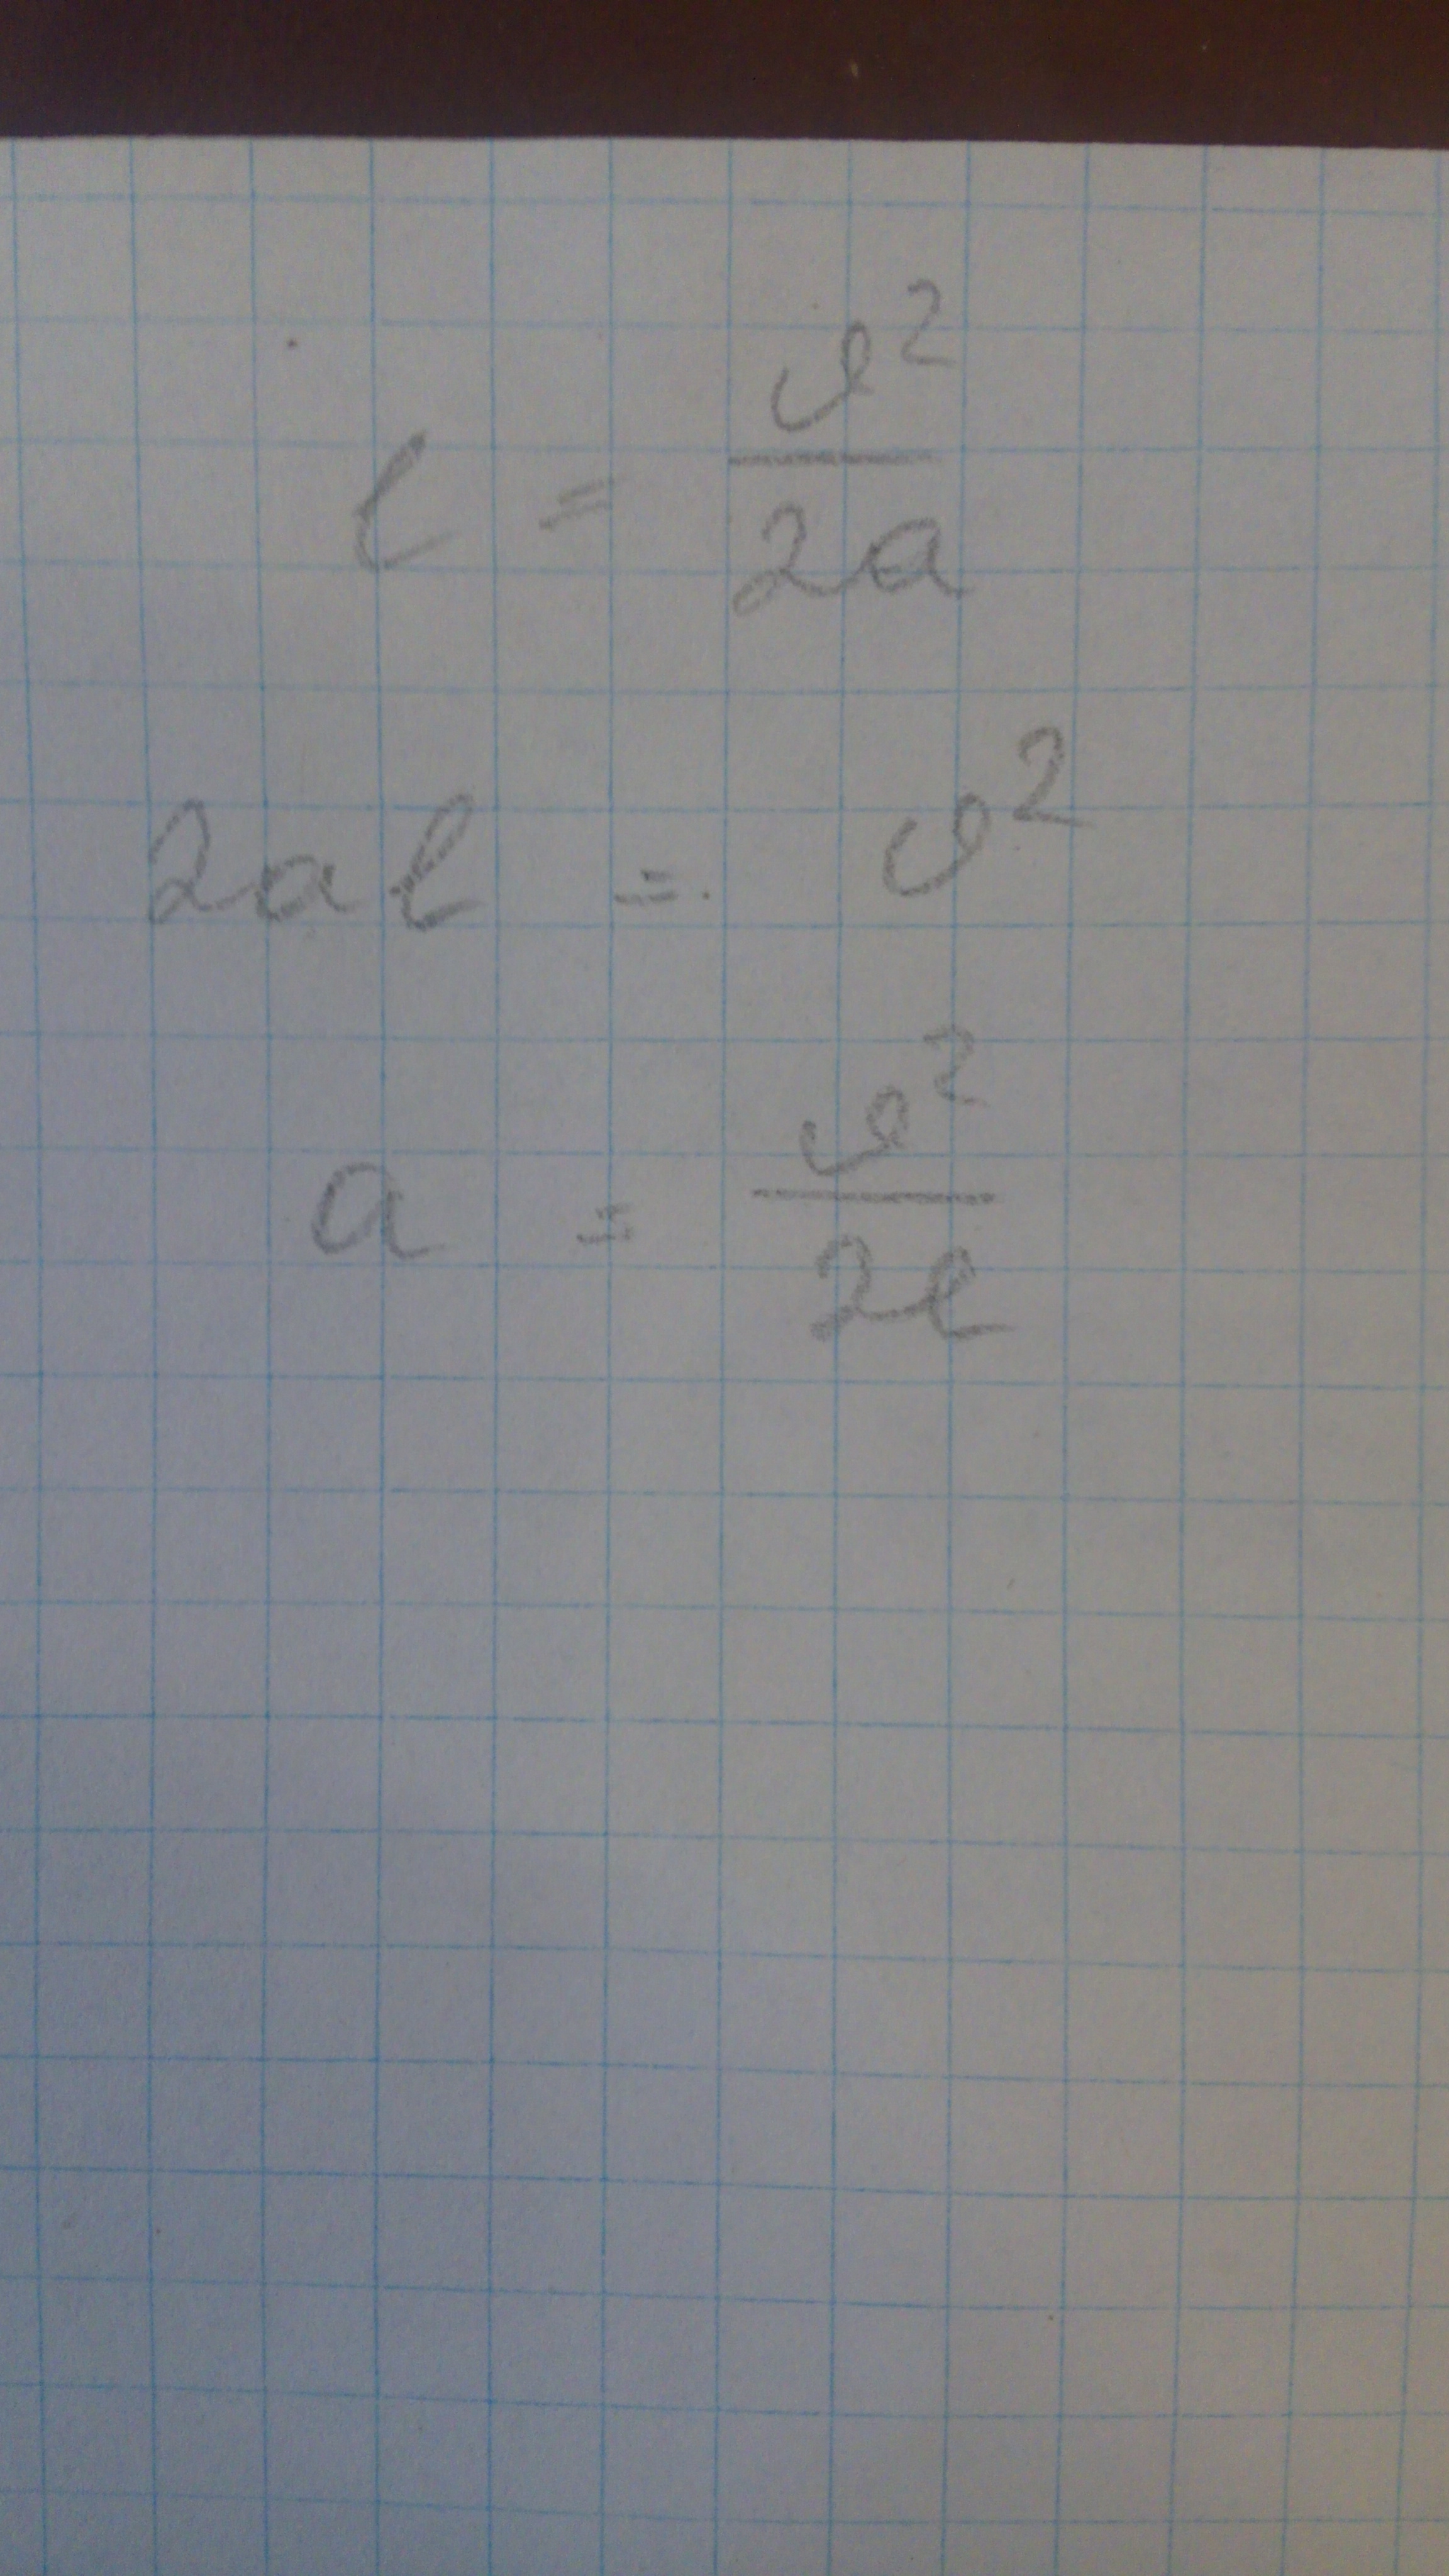 l = υ²/2a
2al = υ²
a = υ²/2l